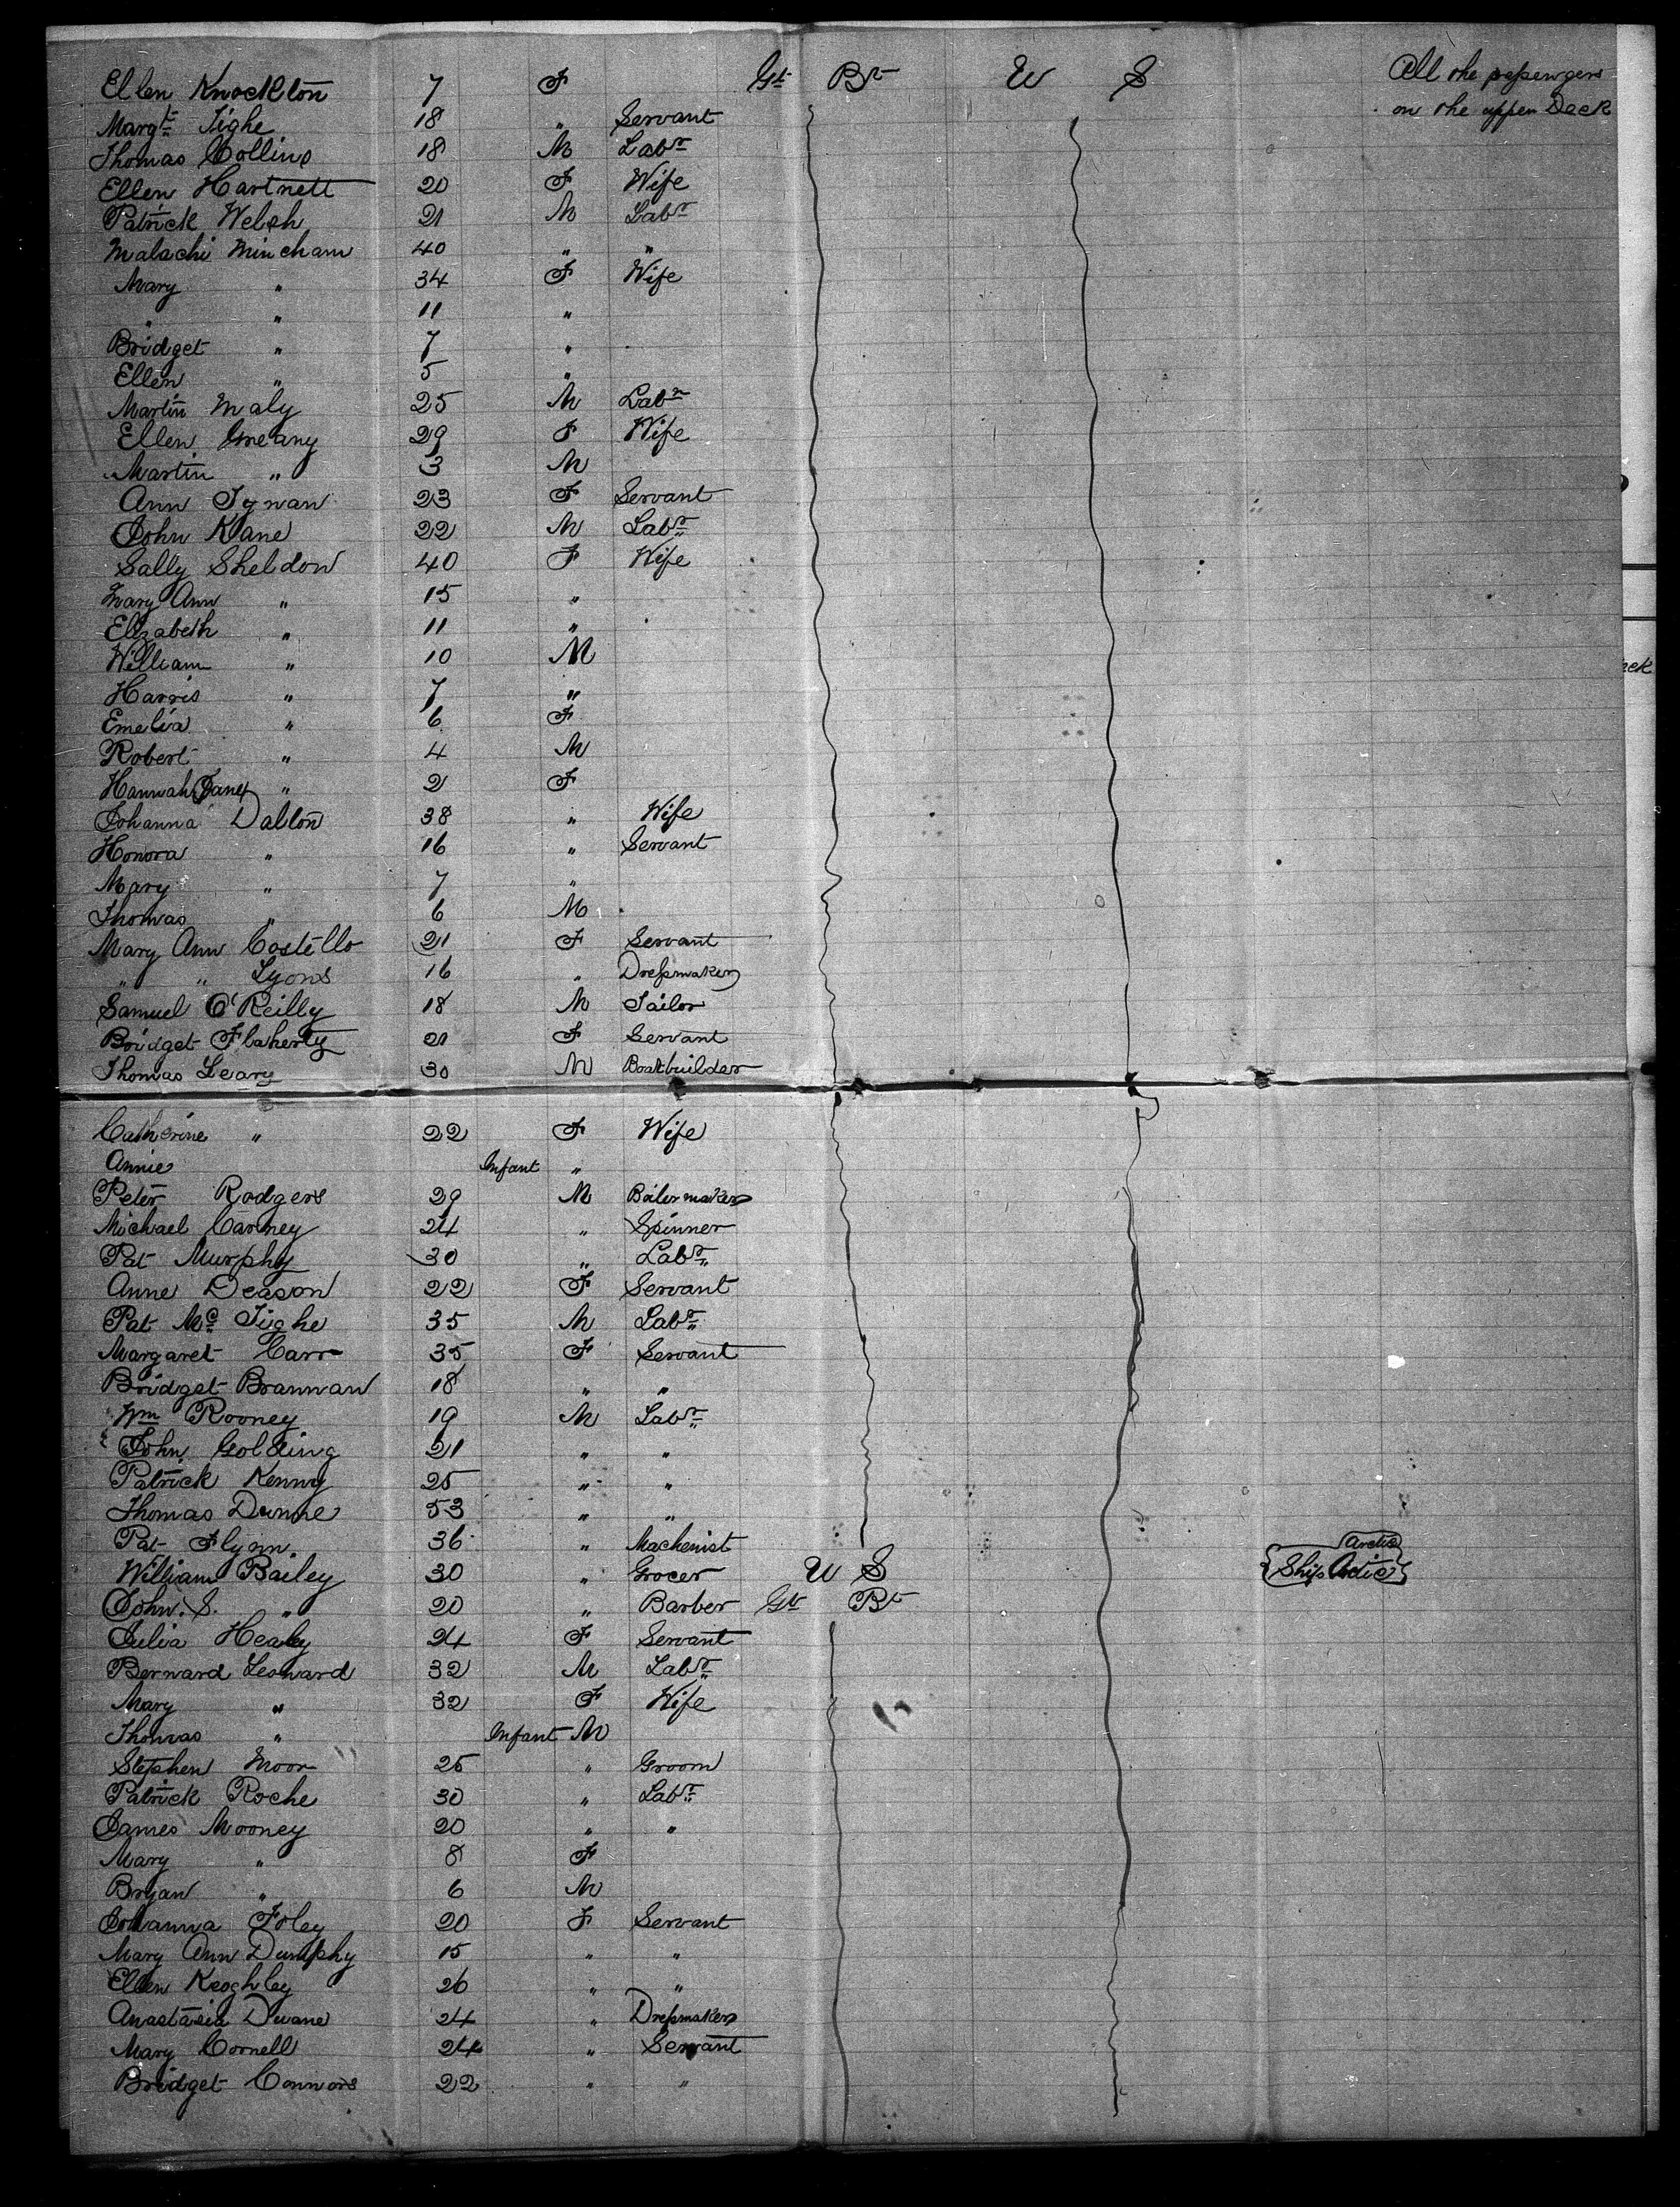 Ellen Knockton 7 F Gt Bt U S All the passengers
on the upper Deck
Margt Tighe 18 " Servant
Thomas Collins 18 M Labr
Ellen Hartnett 20 F Wife
Patrick Welsh 21 M Labr
Malachi Mincham 40 " "
Mary " 34 F Wife
" " 11 "
Bridget " 7 "
Ellen " 5 "
Martin Maly 25 M Labr
Ellen Greany 29 F Wife
Martin " 3 M
Ann Tynan 23 F Servant
John Kane 22 M Labr
Sally Sheldon 40 F Wife
Mary Ann " 15 "
Elizabeth " 11 "
William " 10 M
Harris " 7 "
Emelia " 6 F
Robert " 4 M
Hannah Jane " 2 F
Johanna Dalton 38 " Wife
Honora " 16 " Servant
Mary " 7 "
Thomas " 6 M
Mary Ann Costello 21 F Servant
" " Lyons 16 " Dressmaker
Samuel O'Reilly 18 M Tailor
Bridget Flaherty 21 F Servant
Thomas Leary 30 M Boatbuilder
Catherine " 22 F Wife
Annie Infant "
Peter Rodgers 29 M Boilermaker
Michael Carney 24 " Spinner
Pat Murphy 30 " Labr
Anne Deason 22 F Servant
Pat Mc Tighe 35 M Labr
Margaret Carr 35 F Servant
Bridget Brannan 18 " "
Wm Rooney 19 M Labr
John Golding 21 " "
Patrick Kenny 25 " "
Thomas Dunne 53 " "
Pat Flynn 36 " Machenist
Arctic
William Bailey 30 " Grocer U S Ship Actic
John. S. " 20 " Barber Gt Bt
Julia Healy 24 F Servant
Bernard Leonard 32 M Labr
Mary " 32 F Wife
Thomas " Infant M
Stephen Moor 25 " Groom
Patrick Roche 30 " Labr
James Mooney 20 " "
Mary " 8 F
Bryan " 6 M
Johanna Foley 20 F Servant
Mary Ann Dunphy 15 " "
Ellen Keoghley 26 " "
Anastasia Dwane 24 " Dressmaker
Mary Cornell 24 " Servant
Bridget Connors 22 " "